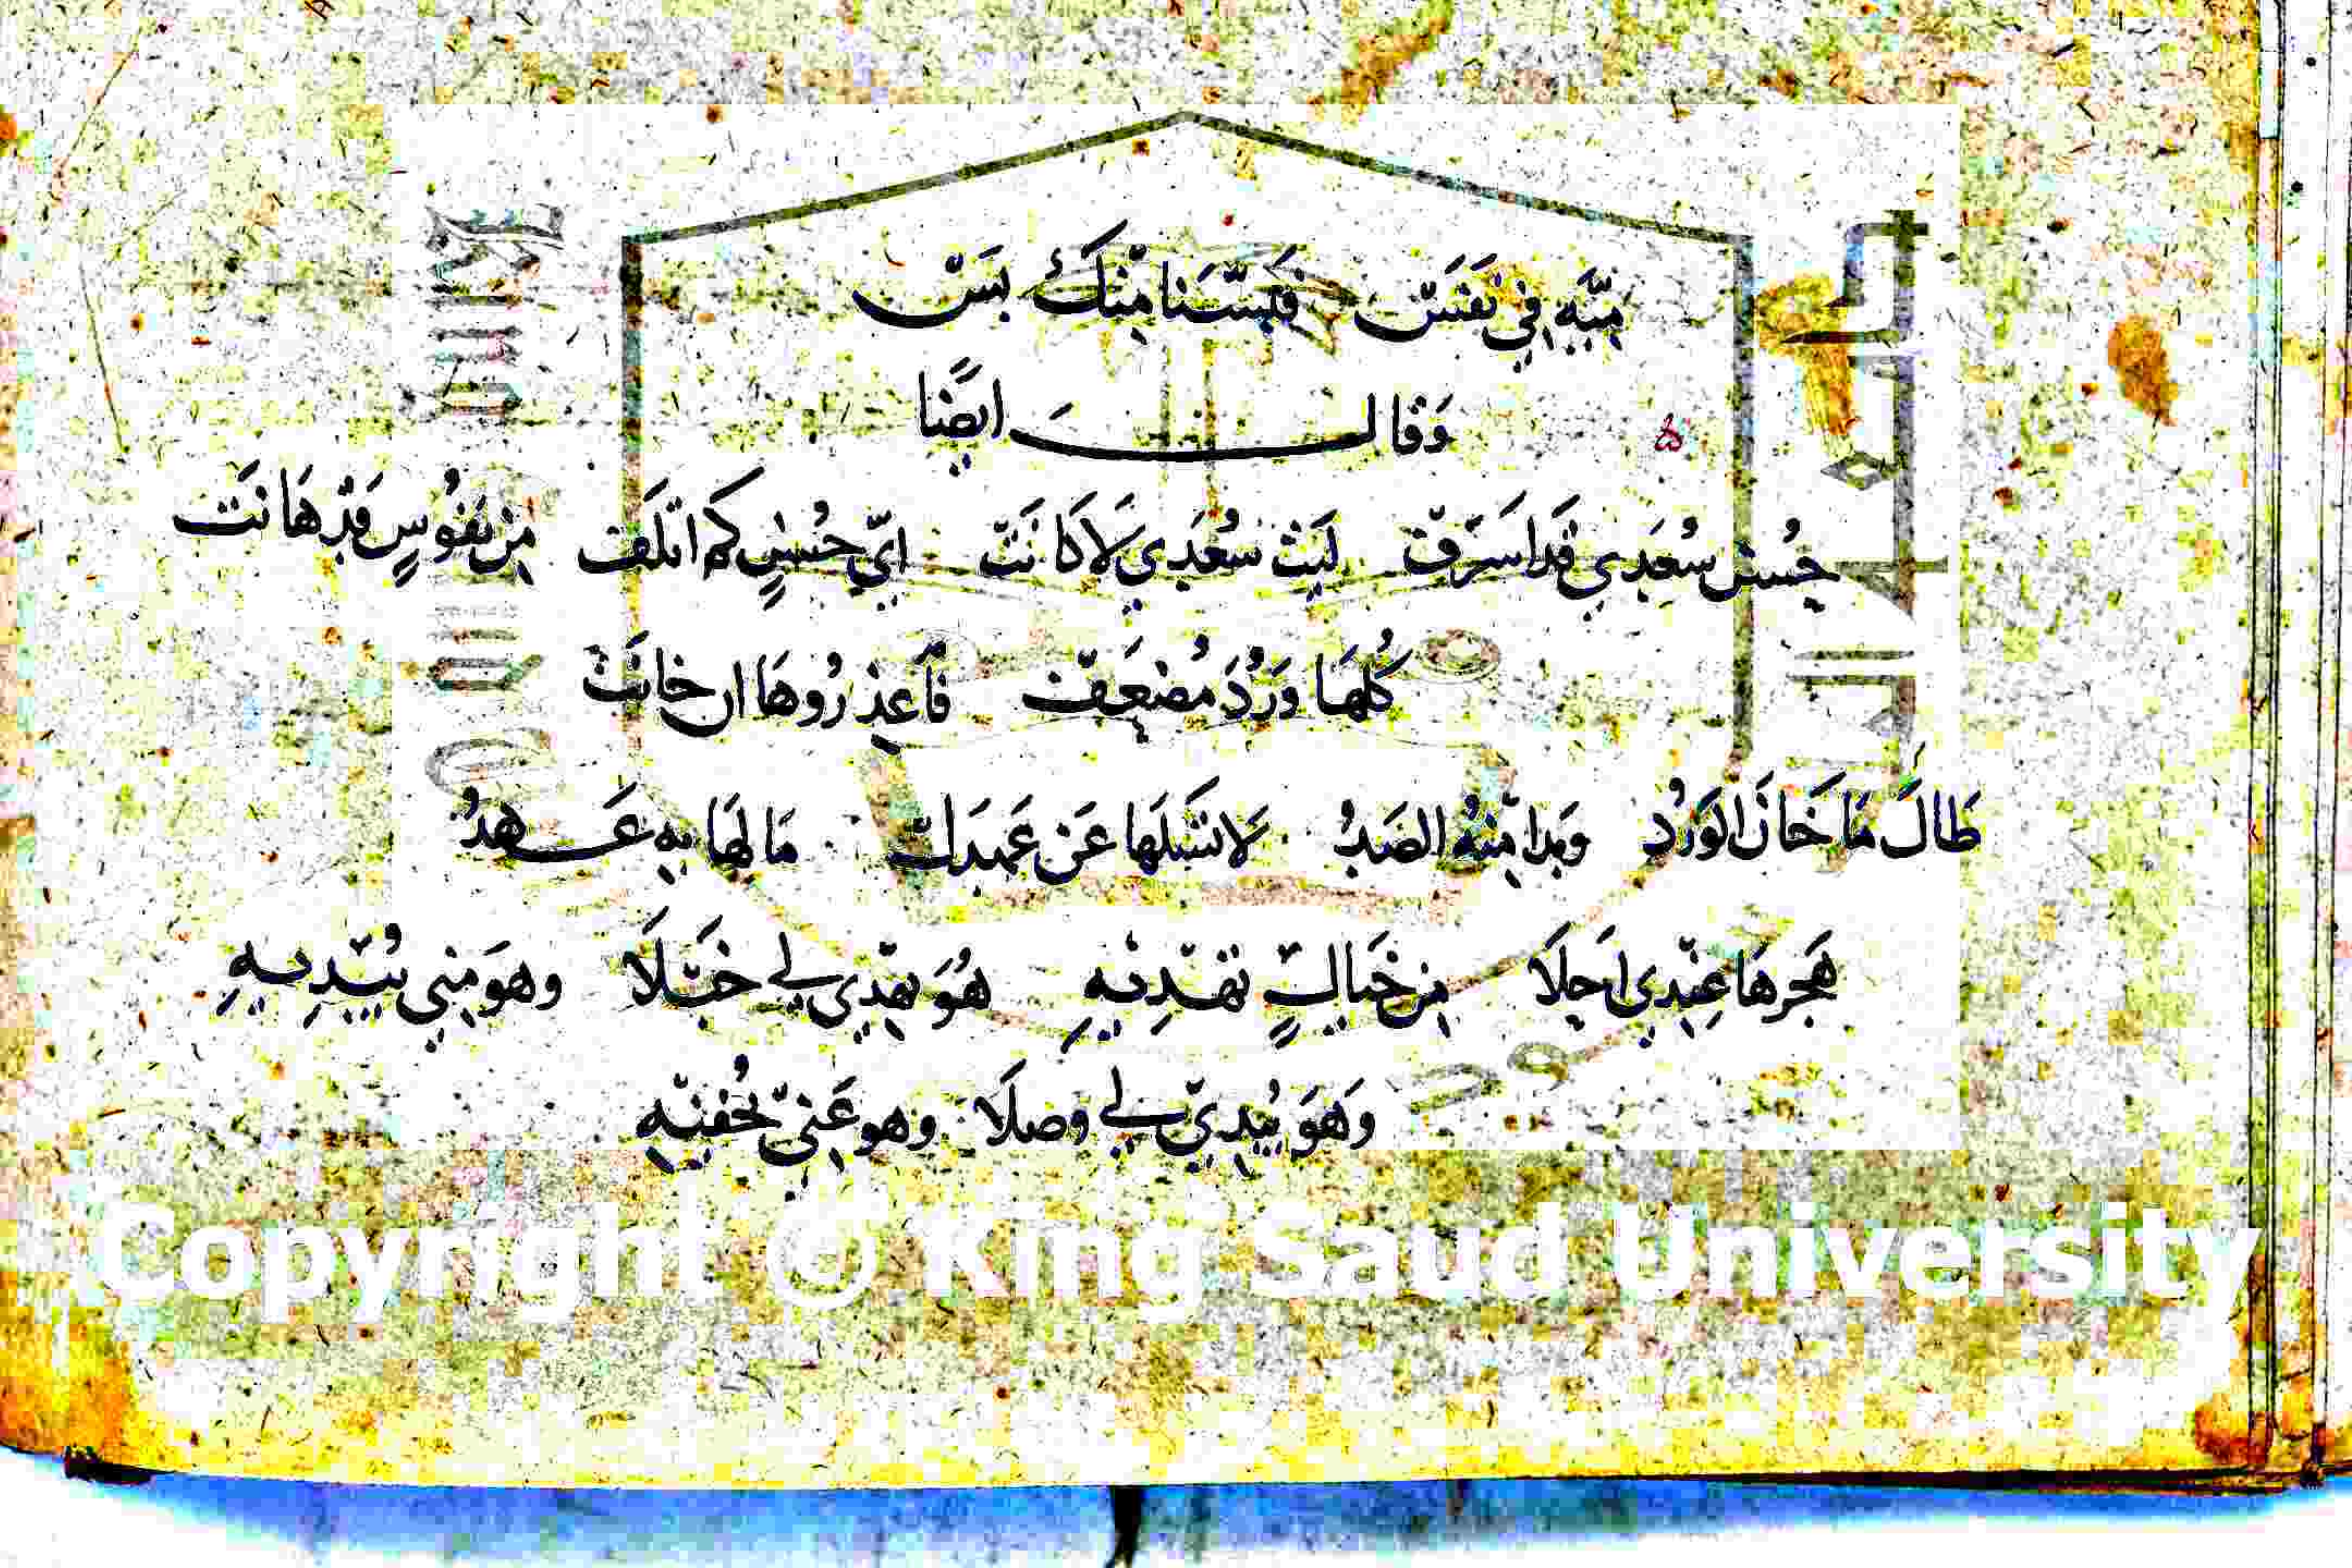 مِيَّه فِي نَفَسْ فَبسَّنَا مِنْكَ بَسْ
وَقَالَ ايضًا
حُسْن سُعْدَي قَد اسَرَفْ لَيْتَ سُعْدَي لَا كَانَتْ ايّ حُسْنٍ كَم اتلَفَ مِن نفُوسٍ قَدْ هَانَتْ
كُلهَا وَرْدَ مُضعَف فَاعذرُوهَا ان خانَتْ
طَالَ مَا خَانَ الوَرْدِ وَبدا مِنْهُ الصَدُ لَا تسَلهَا عَن عَهدِكَ مَا لهَا بِهِ عَهدُ
هَجرهَا عِنْدِي احلَا مِن خَيَالٍ تهْدِيْهِ هُوَ يهْدِي لي خبْلَا وهوَ مِني يُبْدِيهِ
وَهوَ يُبدِيْ لي وَصلَا وهو عَنيّ يُخْفيْهِ
Copyright © King Saud University